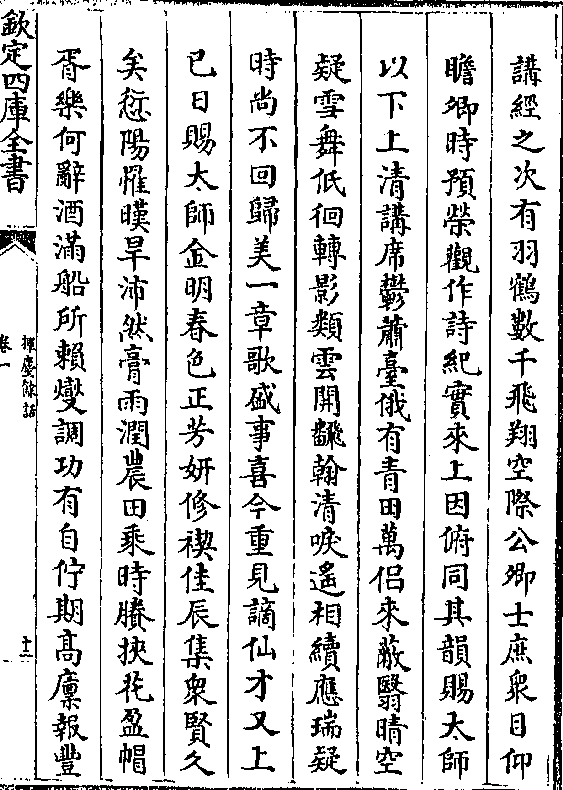 講經之次有羽鶴數千飛翔空際公卿士庶衆目仰
瞻卿時預榮觀作詩紀實來上因俯同其韻賜太師
以下上清講席鬱蕭臺俄有青田萬侣來蔽翳晴空
疑雪舞低徊轉影類雲開飜翰清唳遙相續應瑞疑
時尚不回歸美一章歌盛事喜今重見謫仙才又上
巳日賜太師金明春色正芳妍修禊佳辰集衆賢久
矣愆陽罹暵旱沛然膏雨潤農田乘時賸挾花盈帽
胥樂何辭酒滿船所賴燮調功有自佇期髙廪報豐
欽定四庫全書
揮麈餘話
卷一
十二